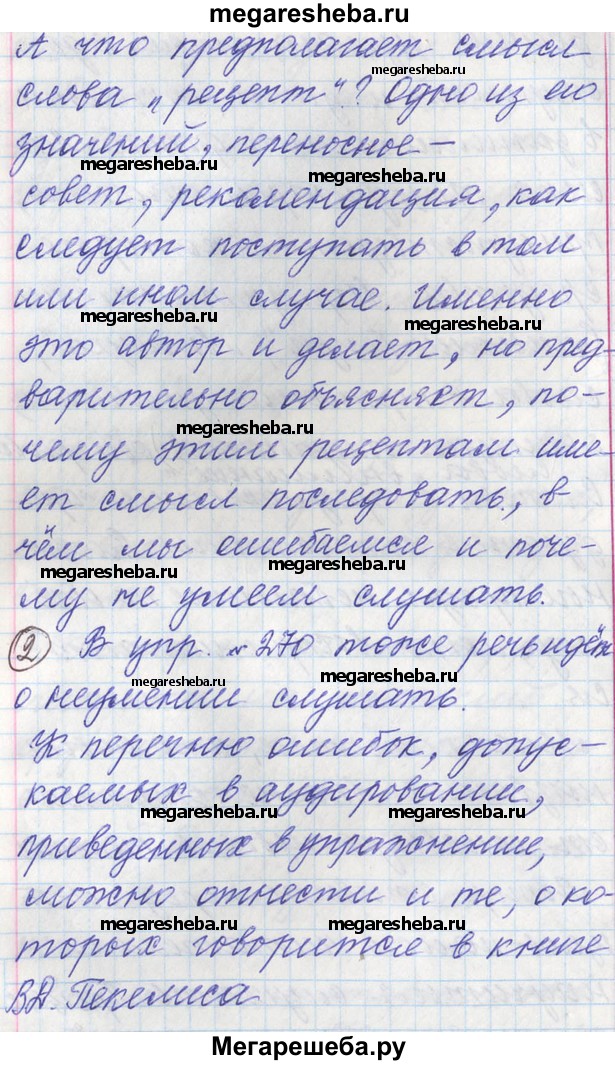 megaresheba.ru
А что предполагает смысл
megaresheba.ru
слова „рецепт“? Одно из его
значений, переносное –
megaresheba.ru megaresheba.ru
совет, рекомендация, как
следует поступать в том
или ином случае. Именно
megaresheba.ru megaresheba.ru
это автор и делает, но пред-
варительно объясняет, по-
megaresheba.ru
чему этим рецептам име-
ет смысл последовать, в
чём мы ошибаемся и поче-
megaresheba.ru megaresheba.ru
му не умеем слушать.
2 В упр. №270 тоже речь идёт
megaresheba.ru megaresheba.ru
о неумении слушать.
К перечню ошибок, допус-
каемых в аудировании,
megaresheba.ru megaresheba.ru
приведенных в упражнении,
можно отнести и те, о ко-
megaresheba.ru megaresheba.ru
торых говорится в книге
В.Д. Пекелиса
Мегарешеба.ру